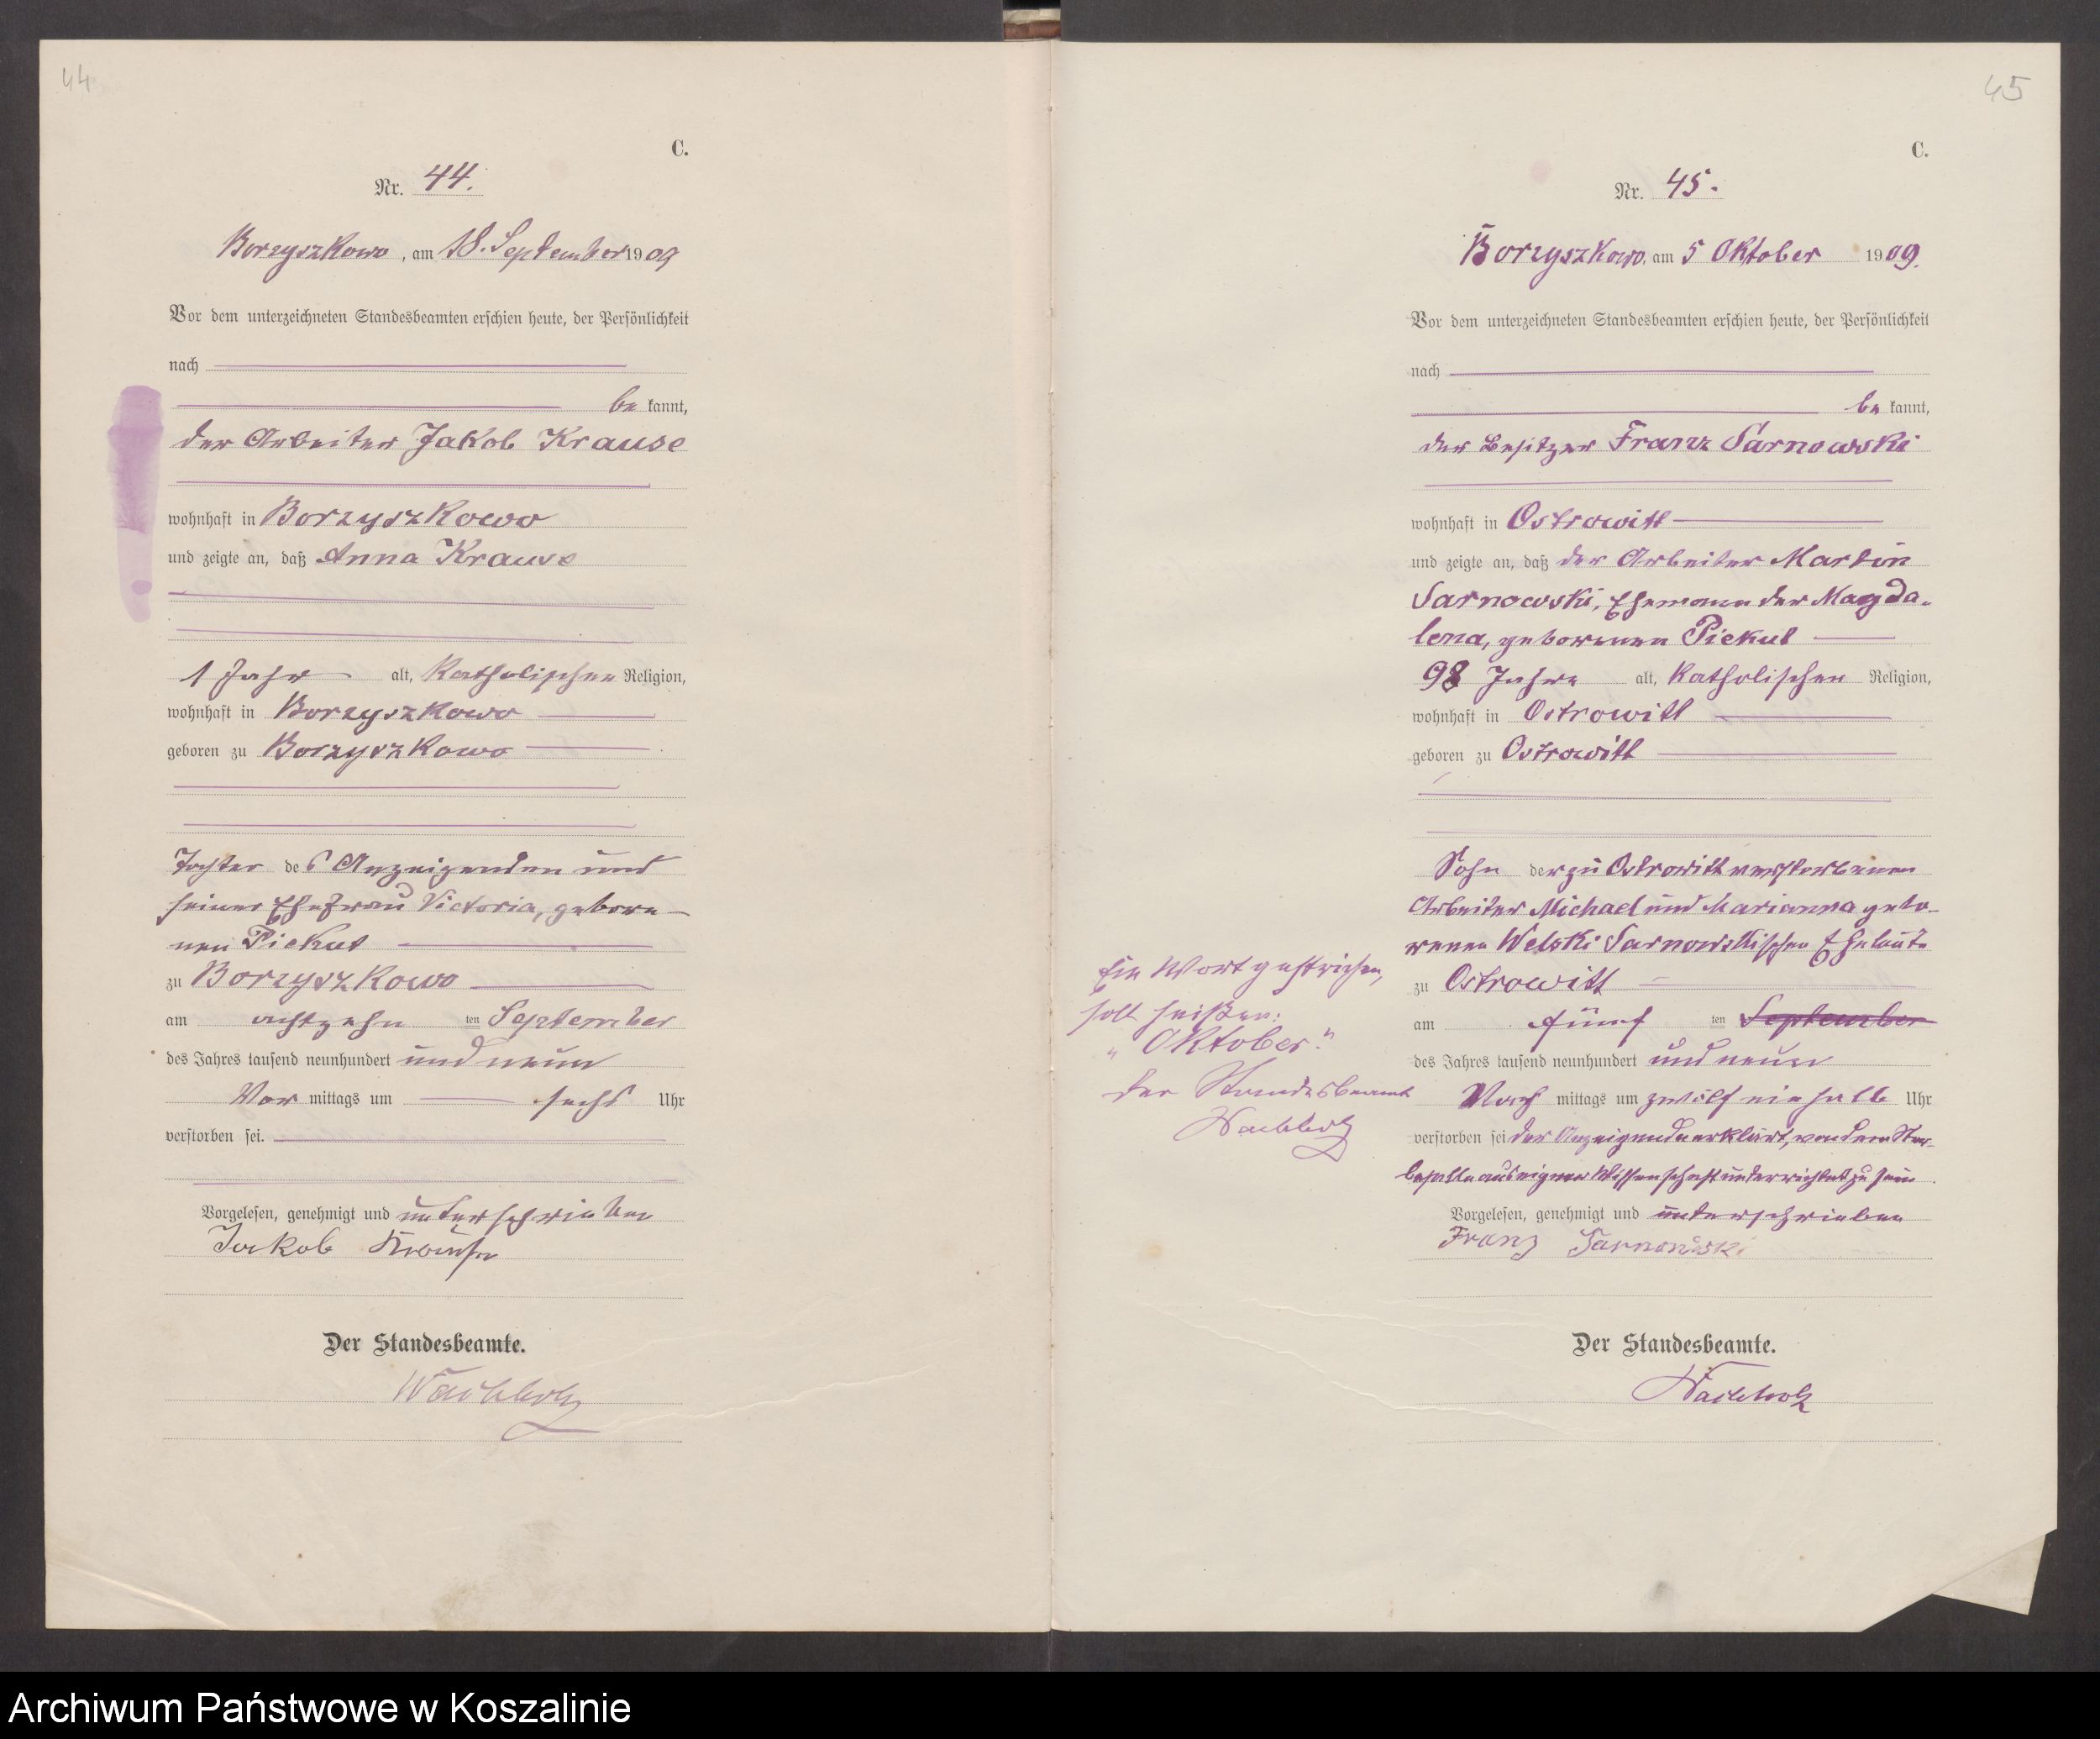 44
C.
Nr. 44.
Borzyszkowo, am 18. September 1909
Vor dem unterzeichneten Standesbeamten erschien heute, der Persönlichkeit
nach
be kannt,
der Arbeiter Jakob Krause
wohnhaft in Borzyszkowo
und zeigte an, daß Anna Krause
1 Jahr alt, katholischer Religion,
wohnhaft in Borzyszkowo
geboren zu Borzyszkowo
Tochter des Anzeigenden und
seiner Ehefrau Victoria, gebore-
nen Piekut
zu Borzyszkowo
am achtzehn ten September
des Jahres tausend neunhundert und neun
Vor mittags um sechs Uhr
verstorben sei.
Vorgelesen, genehmigt und unterschrieben
Jakob Krause
Der Standesbeamte.
Wachholz
45
C.
Nr. 45.
Borzyszkowo, am 5 Oktober 1909.
Vor dem unterzeichneten Standesbeamten erschien heute, der Persönlichkeit
nach
be kannt,
der Besitzer Franz Sarnowski
wohnhaft in Ostrowitt
und zeigte an, daß der Arbeiter Martin
Sarnowski, Ehemann der Magda-
lena, geborenen Piekut
98 Jahre alt, katholischer Religion,
wohnhaft in Ostrowitt
geboren zu Ostrowitt
Sohn der zu Ostrowitt verstorbenen
Arbeiter Michael und Marianna gebo-
renen Welski Sarnowskischen Eheleute
zu Ostrowitt
am fünf ten September
des Jahres tausend neunhundert und neun
Nach mittags um zwölf ein halb Uhr
verstorben sei der Anzeigende erklärt, von dem Ster-
befalle aus eigner Wissenschaft unterrichtet zu sein.
Vorgelesen, genehmigt und unterschrieben
Franz Sarnowski
Der Standesbeamte.
Wachholz
Ein Wort gestrichen,
soll heißen:
"Oktober."
Der Standesbeamte
Wachholz
Archiwum Państwowe w Koszalinie